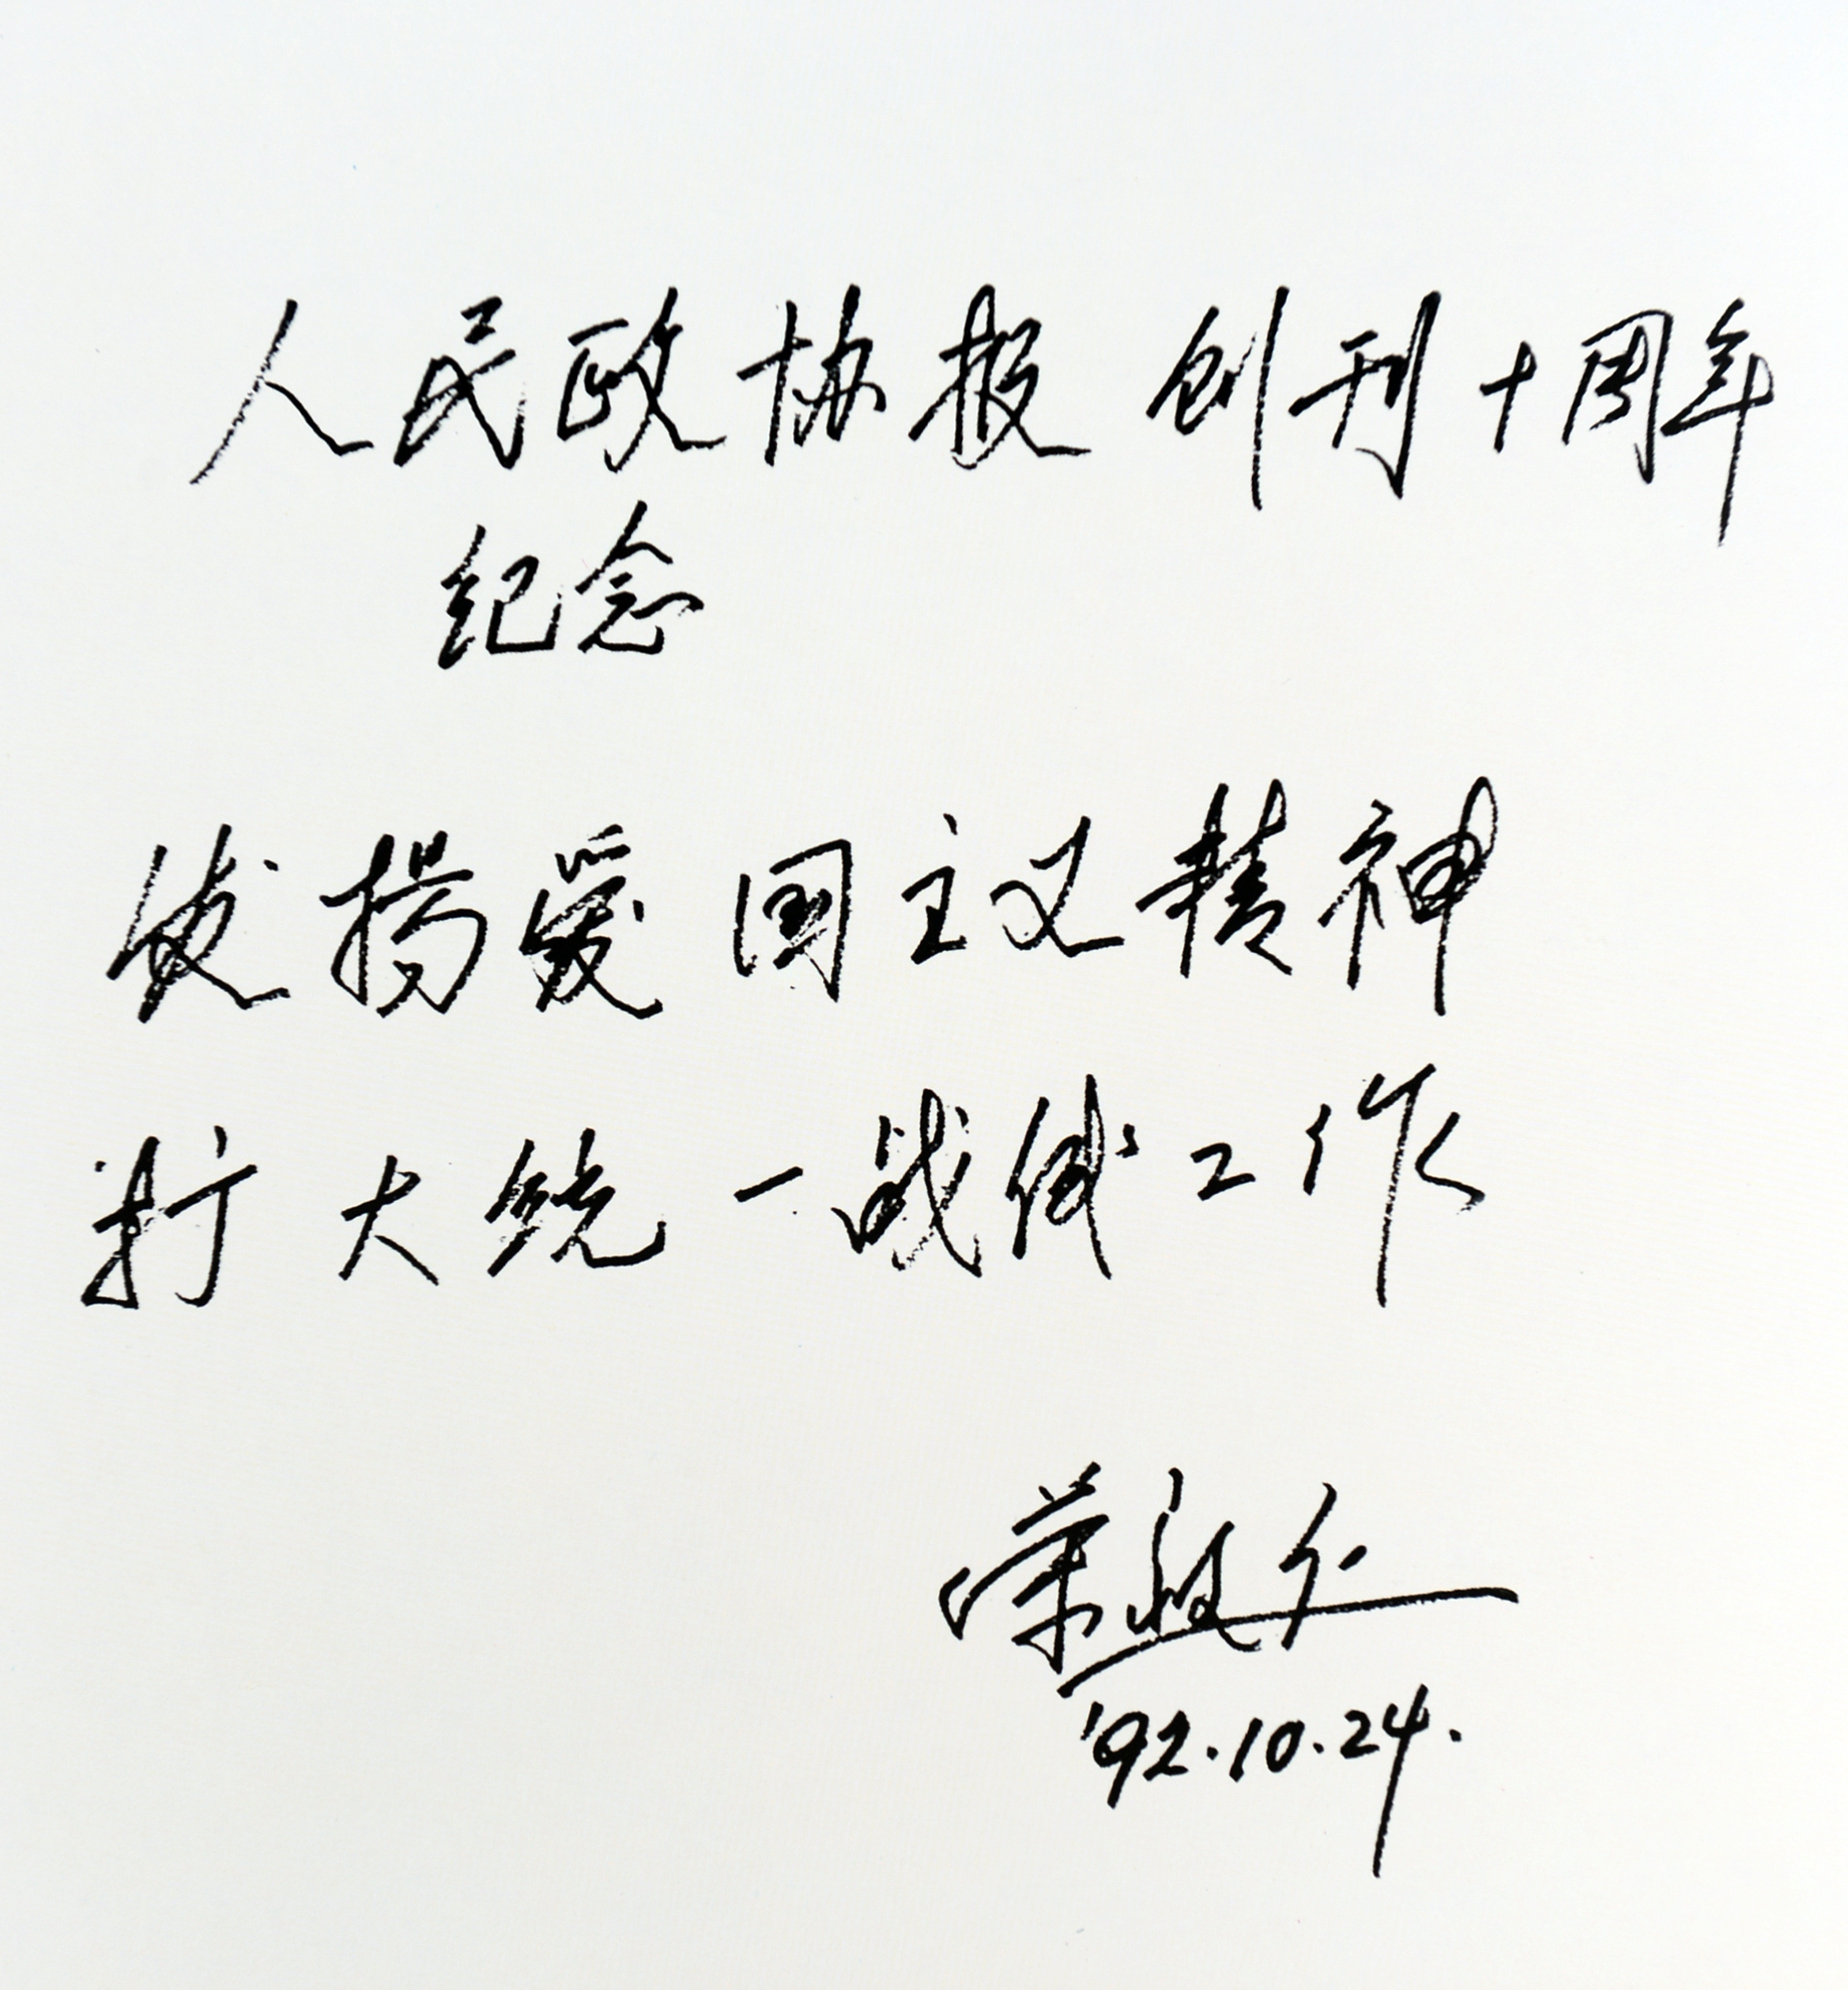 人民政协报创刊十周年
纪念
发扬爱国主义精神
扩大统一战线工作
荣毅仁
'92.10.24.